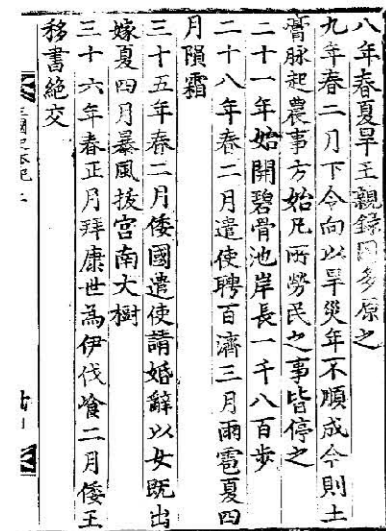 八年春夏旱王親錄囚多原之
九年春二月下令向以旱災年不順成今則土
膏脉起農事方始凡所勞民之事皆停之
二十一年始開碧骨池岸長一千八百步
二十八年春二月遣使聘百濟三月雨雹夏四
月隕霜
三十五年春二月倭國遣使請婚辭以女既出
嫁夏四月暴風拔宮南大樹
三十六年春正月拜康世為伊伐飡二月倭王
移書絶交